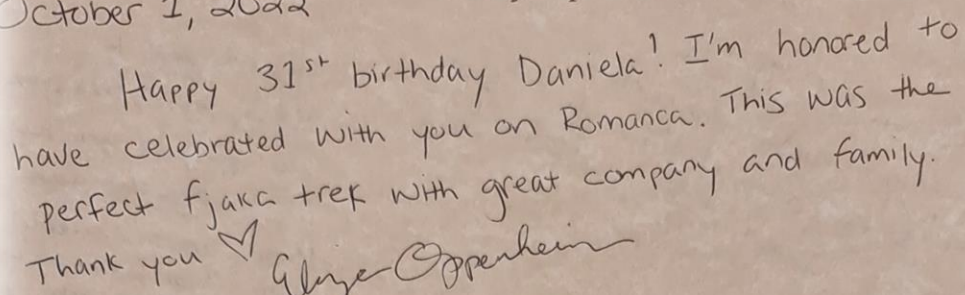 October 1, 2022
Happy 31st birthday Daniela! I'm honored to
have celebrated with you on Romanca. This was the
perfect fjaka trek with great company and family.
Thank you ♡ Oppenheim